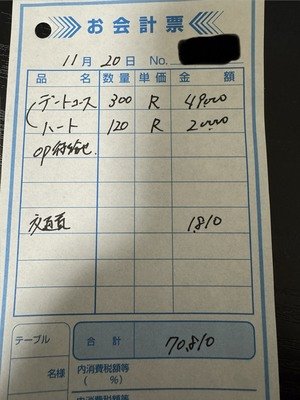 お会計票
11月20日 No.
品名 数量 単価 金額
デートコース 300 R 49000
ハート 120 R 20000
OP
交通費 1810
テーブル 合計 70,810
名様 内消費税額等
( %)
内消費税額等